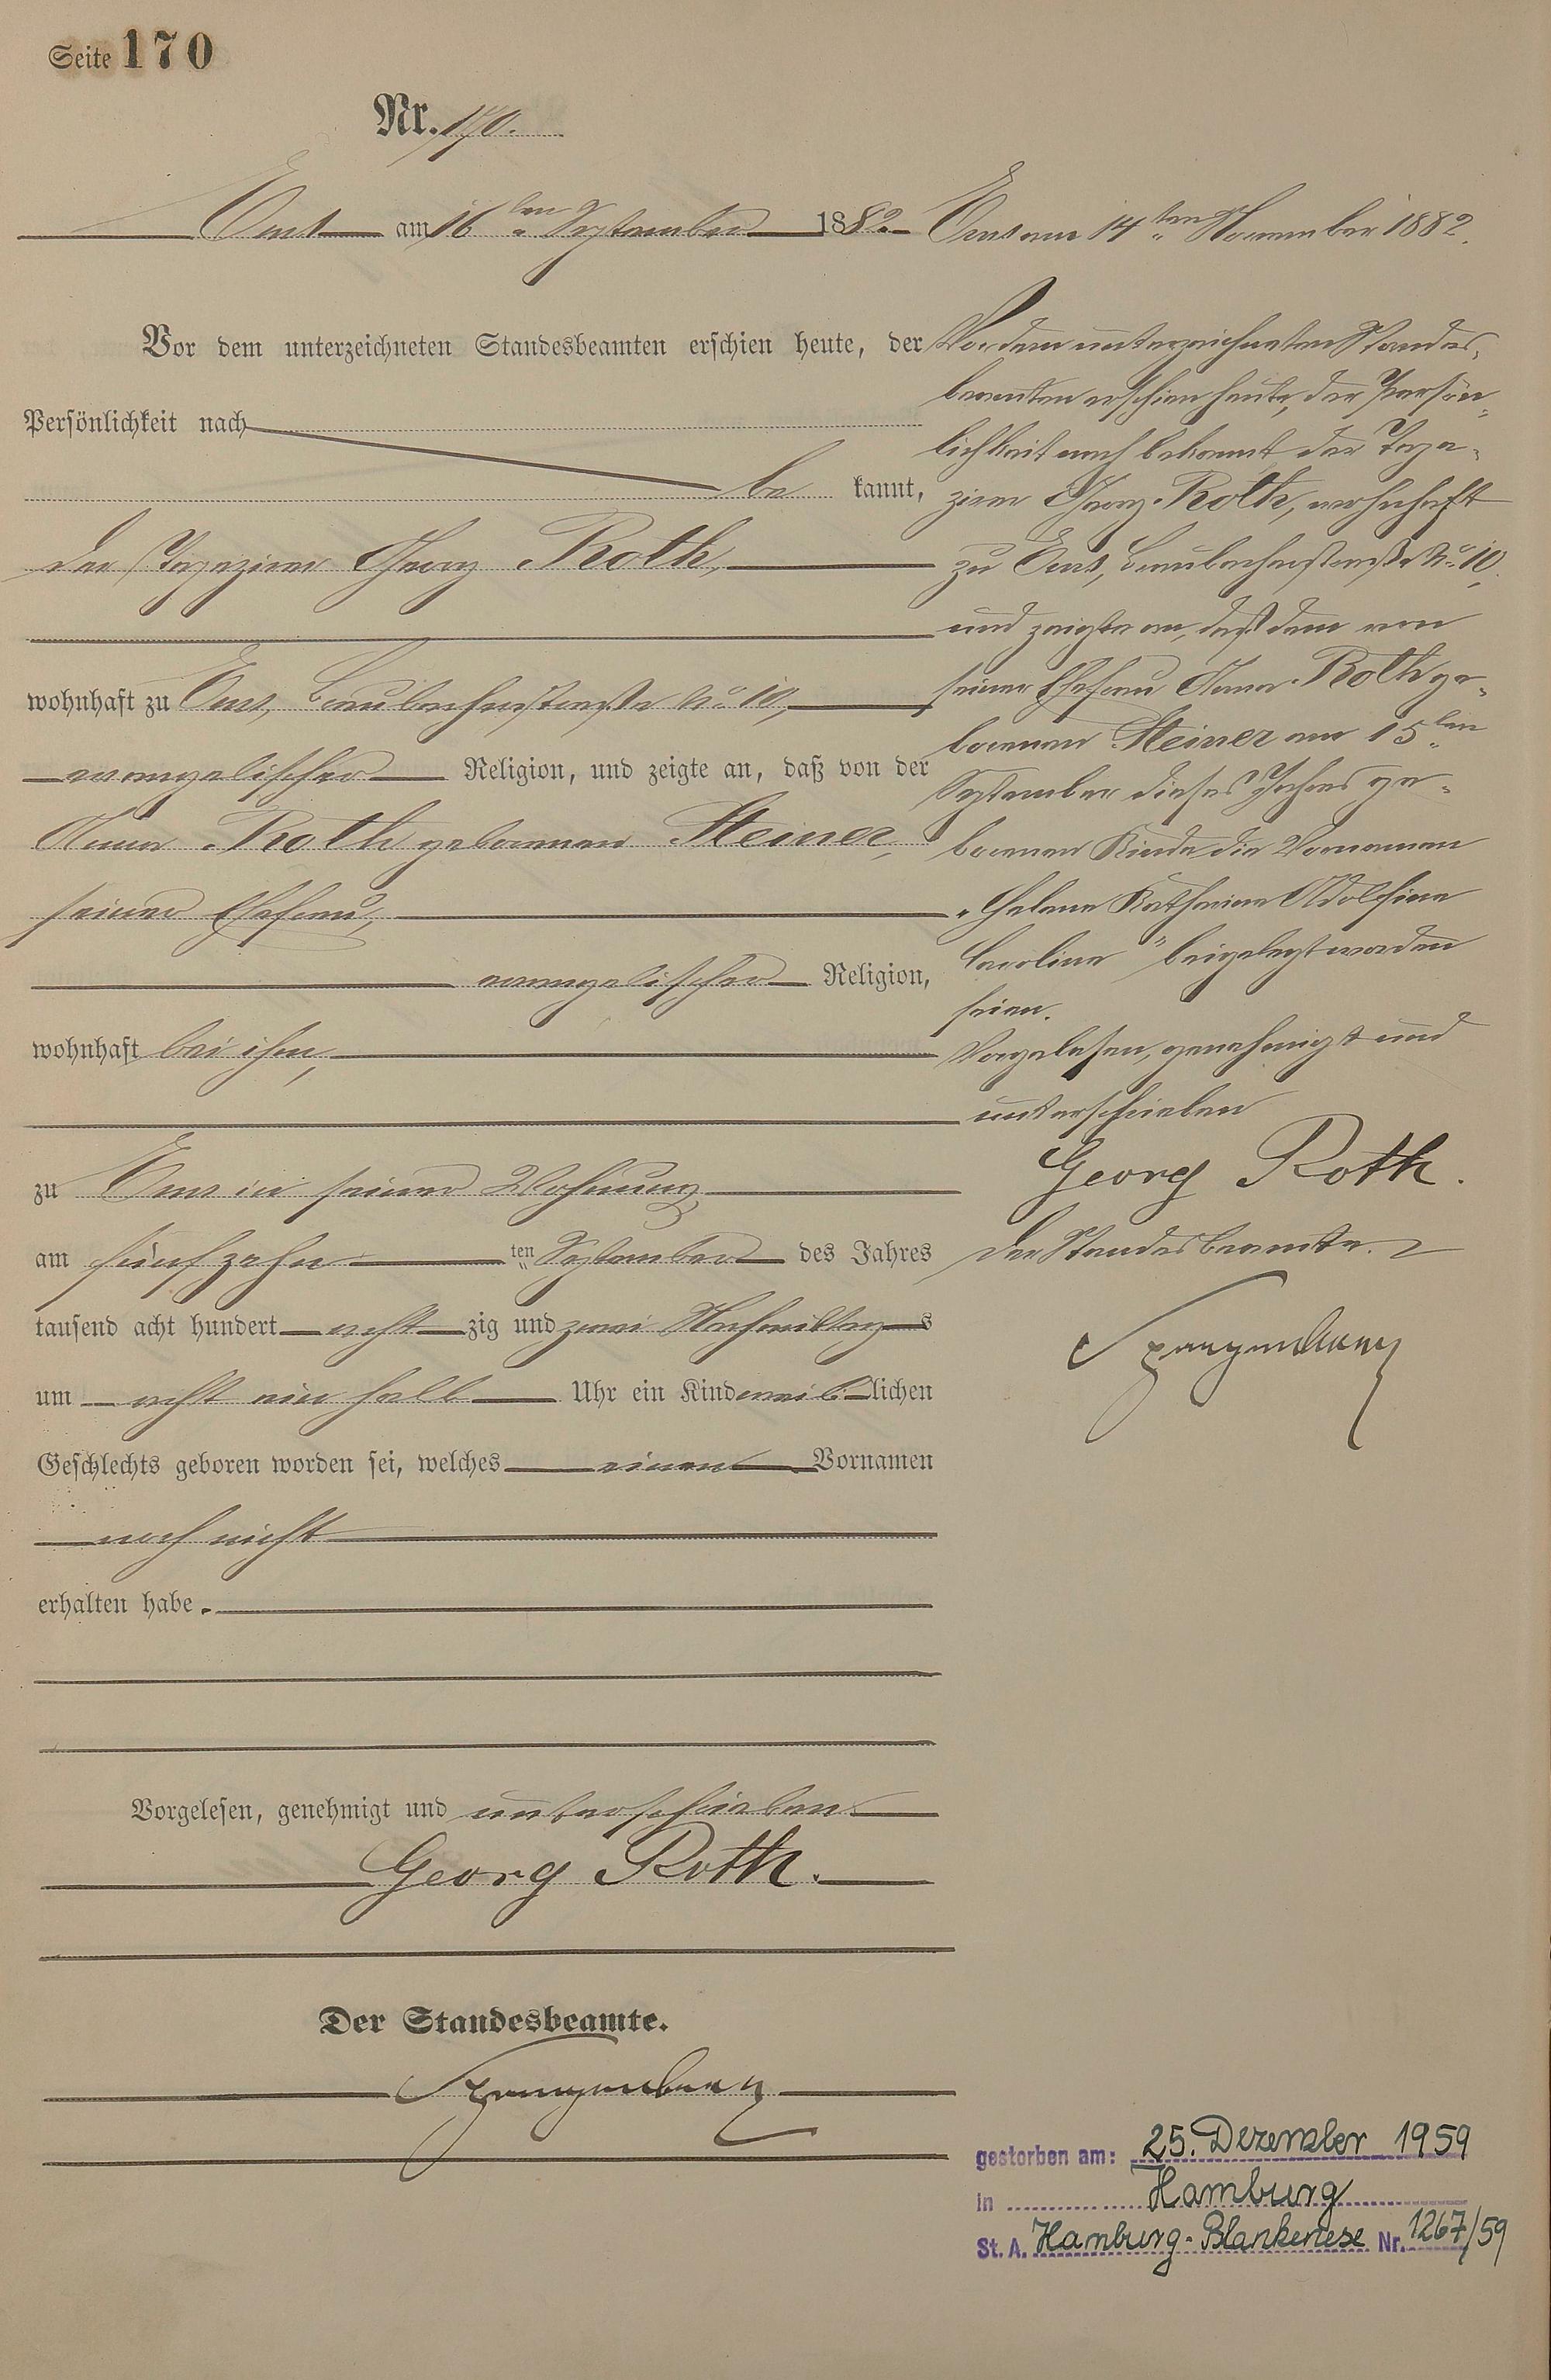 Seite 170
Nr. 170.
Ems am 16ten September 1882.
Vor dem unterzeichneten Standesbeamten erschien heute, der
Persönlichkeit nach
be kannt,
der Tapezirer Georg Roth,
wohnhaft zu Ems, Braubacherstraße No 10,
evangelischer Religion, und zeigte an, daß von der
Anna Roth geborenen Steiner,
seiner Ehefrau,
evangelischer Religion,
wohnhaft bei ihm,
zu Ems in seiner Wohnung
am fünfzehn ten September des Jahres
tausend acht hundert acht zig und zwei Nachmittags
um acht ein halb Uhr ein Kind weib lichen
Geschlechts geboren worden sei, welches einen Vornamen
noch nicht
erhalten habe.
Vorgelesen, genehmigt und unterschrieben
Georg Roth.
Der Standesbeamte.
Spangenberg
Ems am 14ten November 1882.
Vor dem unterzeichneten Standes-
beamten erschien heute, der Persön-
lichkeit nach bekannt der Tape-
zirer Georg Roth, wohnhaft
zu Ems, Braubacherstraße No 10,
und zeigte an, daß dem von
seiner Ehefrau Anna Roth ge-
borenen Steiner am 15ten
September dieses Jahres ge-
borenen Kinde die Vornamen
"Helene Katharine Adolfine
Caroline" beigelegt worden
seien.
Vorgelesen, genehmigt und
unterschrieben
Georg Roth.
Der Standesbeamte.
Spangenberg
gestorben am: 25. Dezember 1959
in Hamburg
St. A. Hamburg-Blankenese Nr. 1267/59